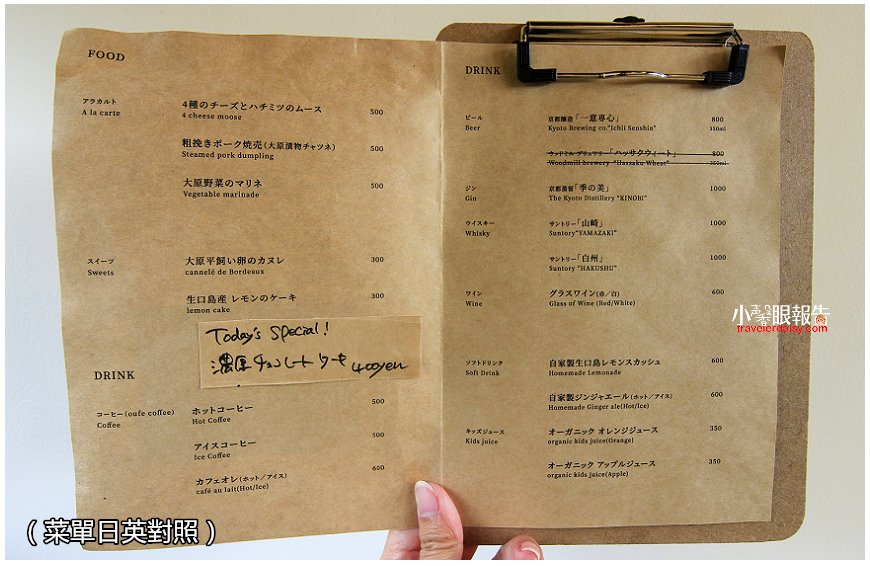 FOOD
アラカルト
A la carte
4種のチーズとハチミツのムース
4 cheese moose
500
粗挽きポーク焼売(大原漬物チャツネ)
Steamed pork dumpling
500
大原野菜のマリネ
Vegetable marinade
500
スイーツ
Sweets
大原平飼い卵のカヌレ
cannelé de Bordeaux
300
生口島産 レモンのケーキ
lemon cake
300
Today's special!
濃厚チョコレートケーキ 400yen
DRINK
コーヒー(oufe coffee)
Coffee
ホットコーヒー
Hot Coffee
500
アイスコーヒー
Ice Coffee
500
カフェオレ(ホット/アイス)
café au lait(Hot/Ice)
600
DRINK
ビール
Beer
京都醸造「一意専心」
Kyoto Brewing co."Ichii Senshin"
800
350ml
ウッドミル ブリュワリー「ハッサクウィート」
Woodmill brewery "Hassaku Wheat"
800
350ml
ジン
Gin
京都蒸留「季の美」
The Kyoto Distillery "KINOBI"
1000
ウイスキー
Whisky
サントリー「山崎」
Suntory"YAMAZAKI"
1000
サントリー「白州」
Suntory "HAKUSHU"
1000
ワイン
Wine
グラスワイン(赤/白)
Glass of Wine (Red/White)
600
ソフトドリンク
Soft Drink
自家製生口島レモンスカッシュ
Homemade Lemonade
600
自家製ジンジャエール(ホット/アイス)
Homemade Ginger ale(Hot/Ice)
600
キッズジュース
Kids juice
オーガニック オレンジジュース
organic kids juice(Orange)
350
オーガニック アップルジュース
organic kids juice(Apple)
350
小眼報告
travelerdaisy.com
(菜單日英對照)